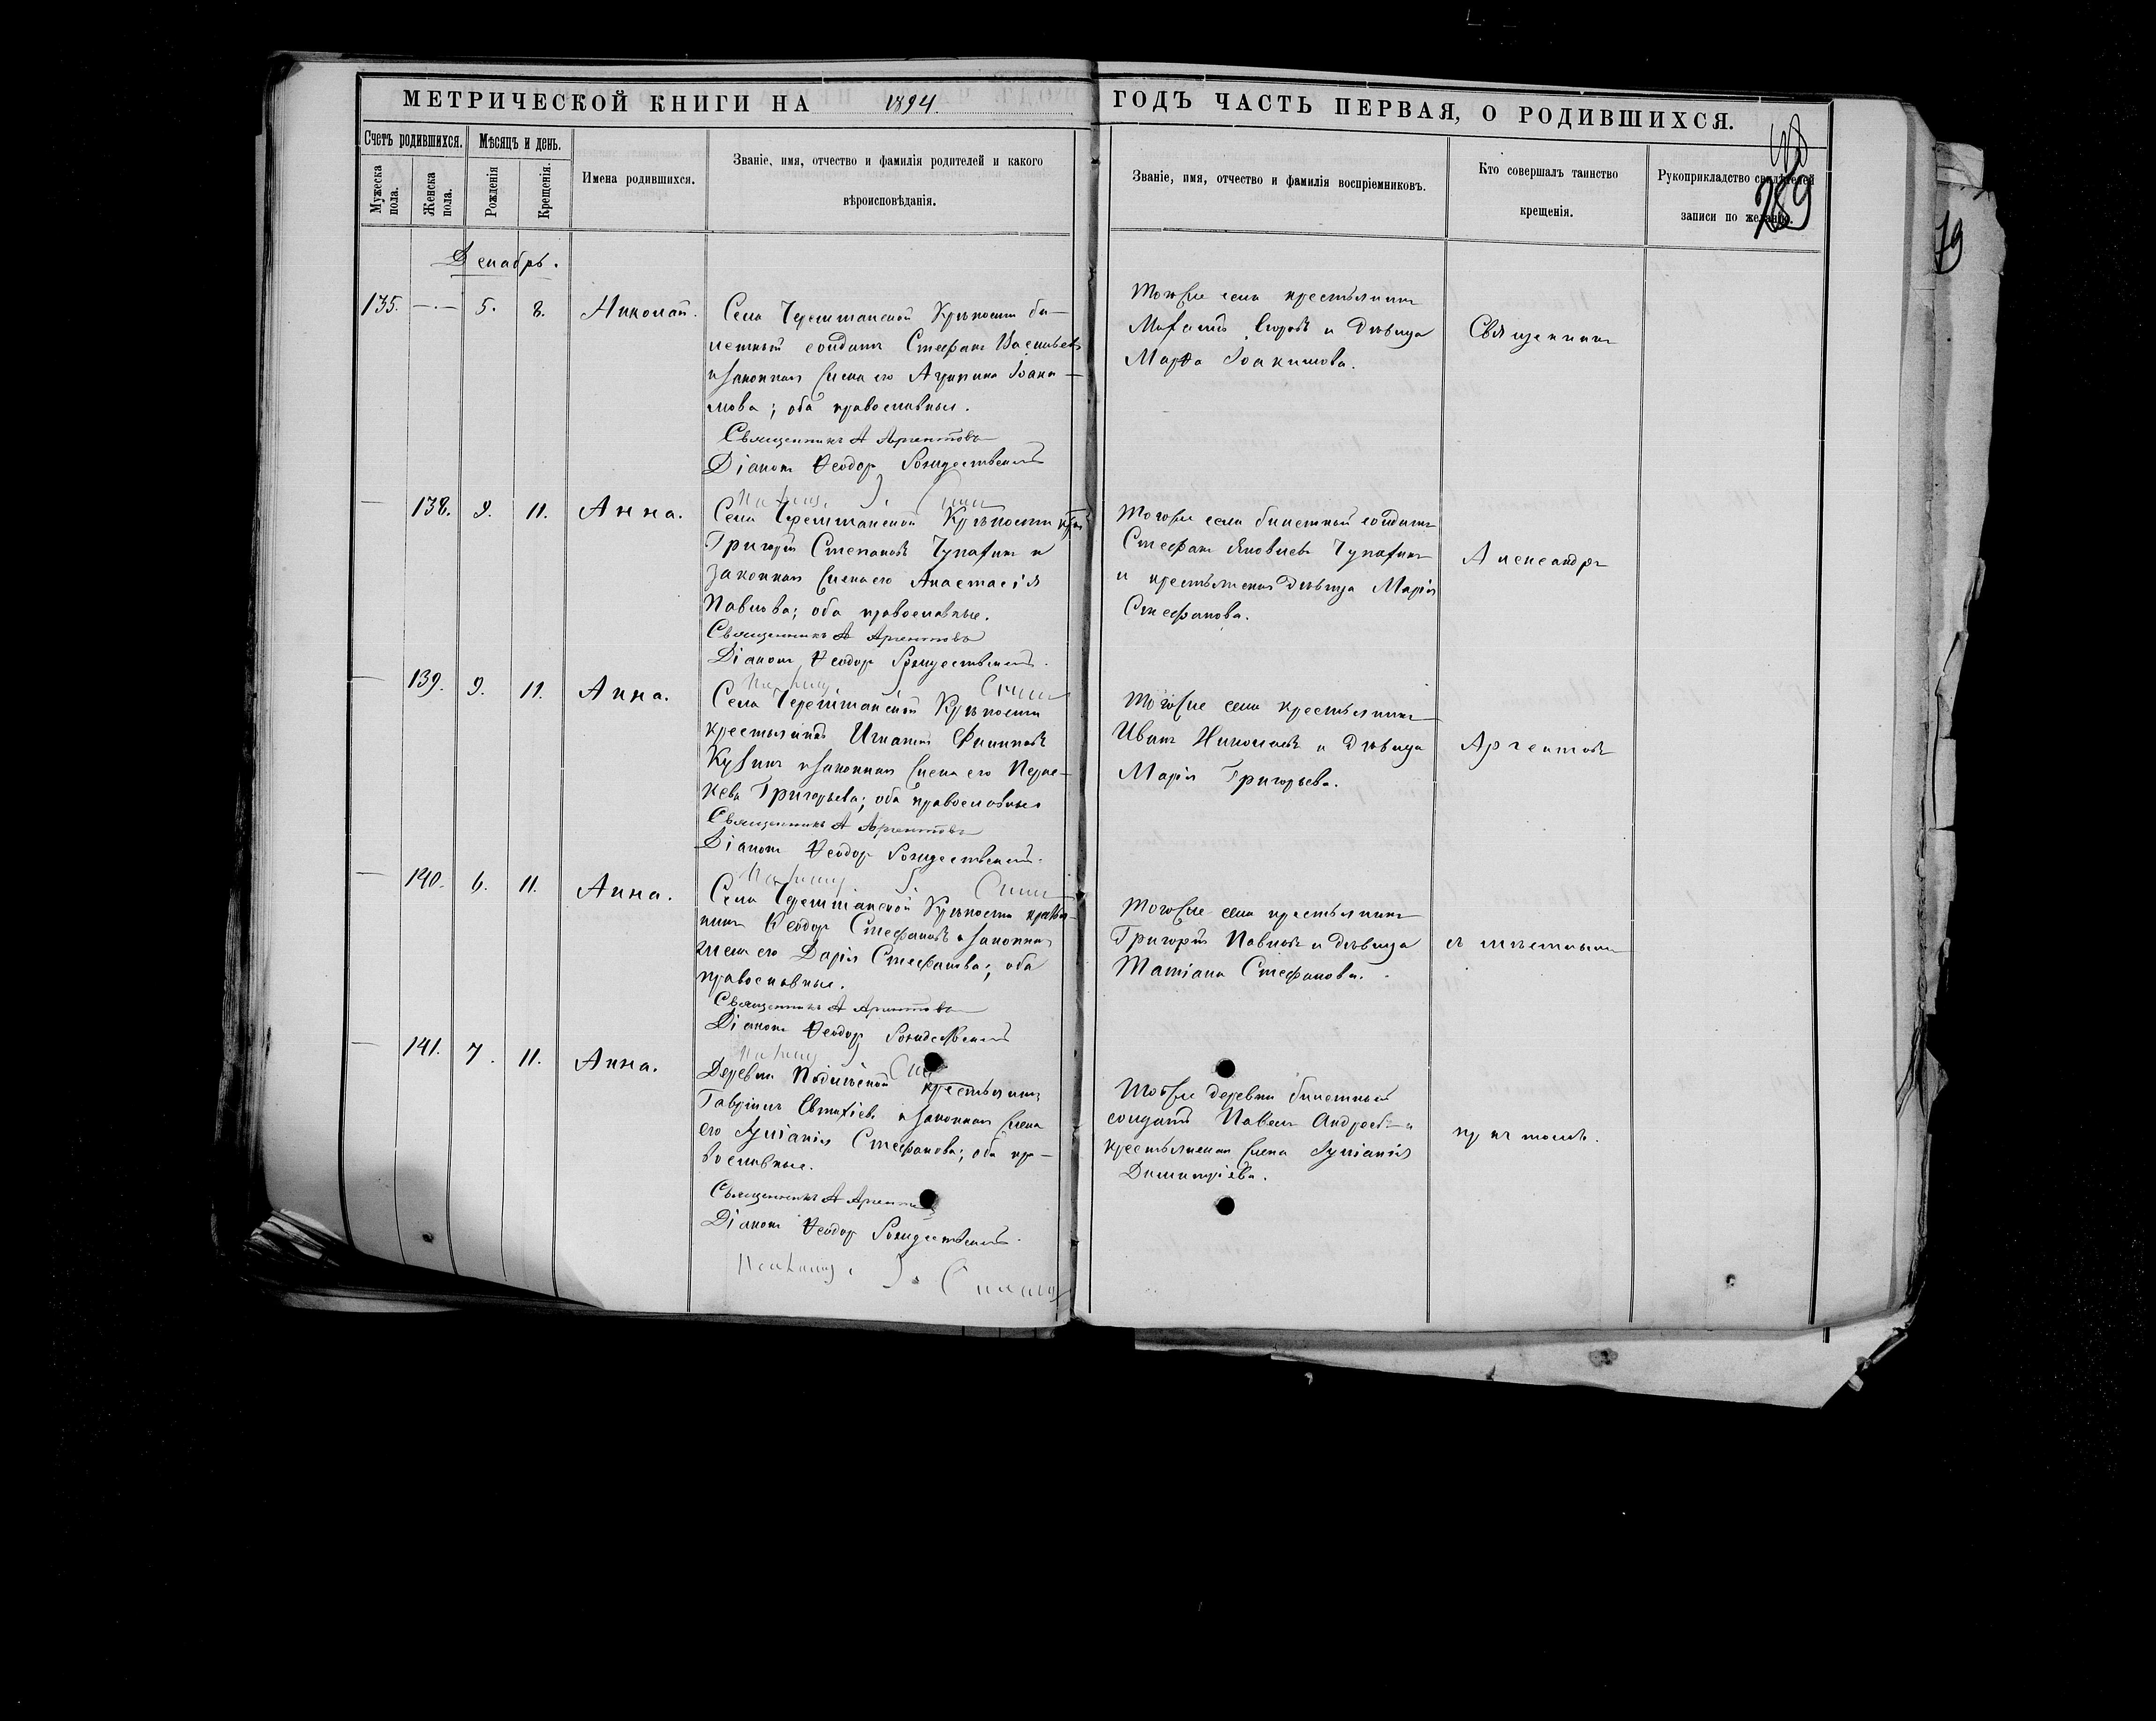 МЕТРИЧЕСКОЙ КНИГИ НА 1894. ГОДЪ ЧАСТЬ ПЕРВАЯ, О РОДИВШИХСЯ.
289
79
Счетъ родившихся.
Мѣсяцъ и день.
Мужеска пола.
Женска пола.
Рожденія
Крещенія.
Имена родившихся.
Званіе, имя, отчество и фамилія родителей и какого
вѣроисповѣданія.
Званіе, имя, отчество и фамилія воспріемниковъ.
Кто совершалъ таинство
крещенія.
Рукоприкладство свидѣтелей
записи по желанію.
Декабрь.
135. 5. 8. Николай.
Села Черемшанской Крѣпости би-
летный солдатъ Стефанъ Васильевъ
и законная жена его Агрипина Іоаки-
мова; оба православные.
Священникъ А Аргентовъ
Діаконъ Ѳеодоръ Рождественскій
Тогоже села крестьянинъ
Егоровъ и дѣвица
Марѳа Іоакимова.
Священникъ
138. 9. 11. Анна.
Села Черемшанской Крѣпости
Григорій Степановъ Чупахинъ и
законная жена его Анастасія
Павлова; оба православные.
Священникъ А Аргентовъ
Діаконъ Ѳеодоръ Рождественскій.
Тогоже села билетный солдатъ
Стефанъ Яковлевъ Чупахинъ
и крестьянская дѣвица Марія
Стефанова.
Александръ
139. 9. 11. Анна.
Села Черемшанской Крѣпости
крестьянинъ Игнатій Филиповъ
Кузинъ и законная жена его Парас-
кева Григорьева; оба православные
Священникъ А Аргентовъ
Діаконъ Ѳеодоръ Рождественскій.
Тогоже села крестьянинъ
Иванъ Николаевъ и дѣвица
Марія Григорьева.
Аргентовъ
140. 6. 11. Анна.
Села Черемшанской Крѣпости
нинъ Ѳеодоръ Стефановъ и законная
жена его Дарія Стефанова; оба
православные.
Священникъ А Аргентовъ
Діаконъ Ѳеодоръ Рождественскій
Тогоже села крестьянинъ
Григорій Павловъ и дѣвица
Татіана Стефанова.
съ мѣстнымъ
141. 7. 11. Анна.
Деревни крестьянинъ
Гавріилъ Евтихіевъ и законная жена
его Іуліанія Стефанова; оба пра-
вославные.
Священникъ А Аргентовъ
Діаконъ Ѳеодоръ Рождественскій.
Тойже деревни билетный
солдатъ Павелъ Андреевъ и
крестьянская жена Іуліанія
Димитріева.
причтомъ.